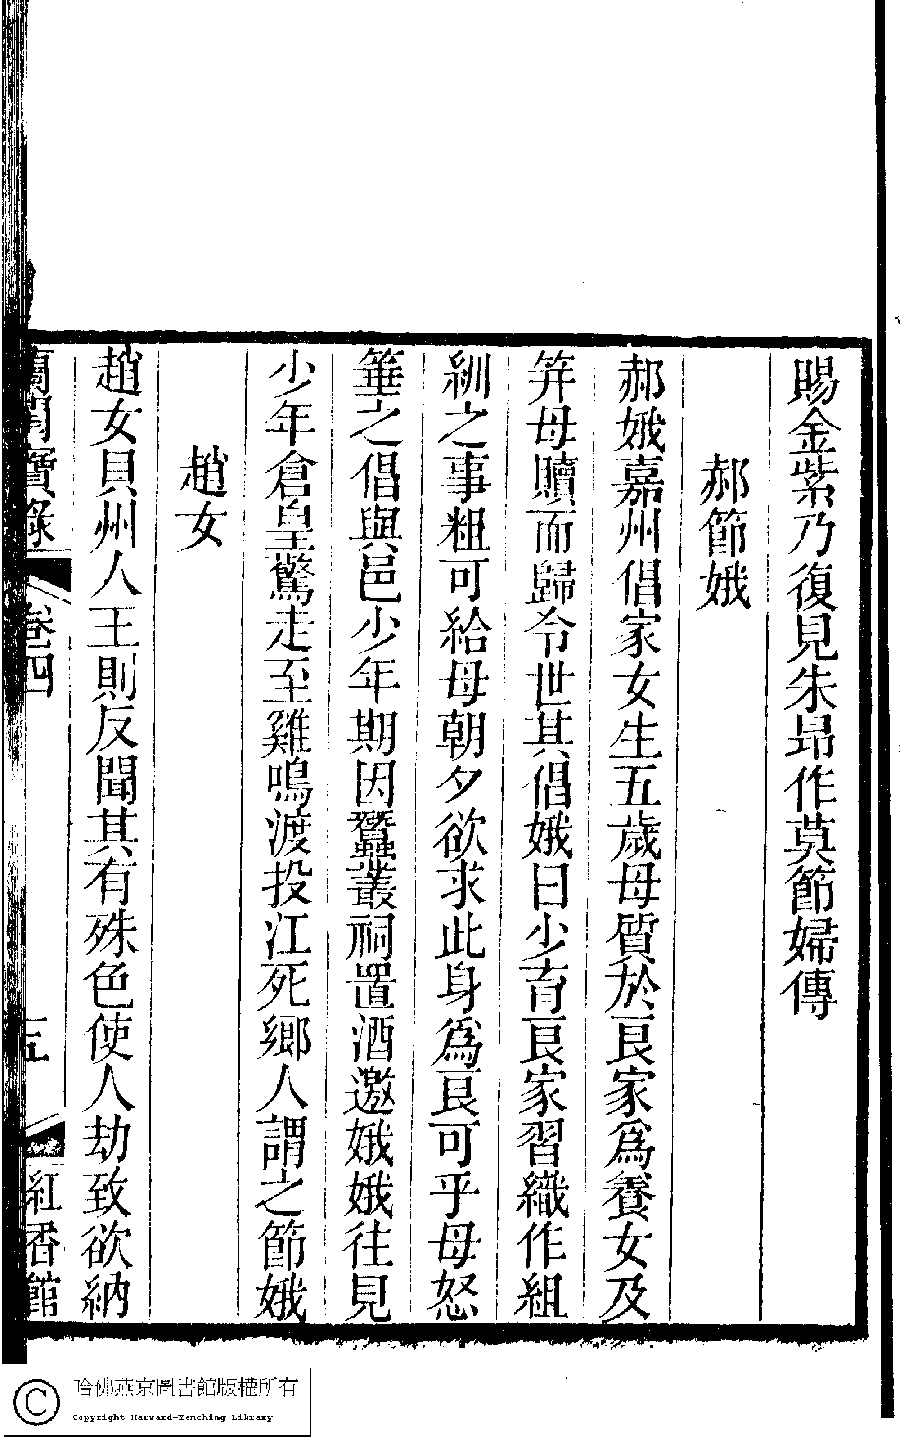 賜金紫乃復見朱昂作莫節婦傳
郝節娥
郝娥嘉州倡家女生五歲母質於良家爲養女及
笄母贖而歸令世其倡娥曰少育良家習織作組
紃之事粗可給母朝夕欲求此身爲良可乎母怒
箠之倡與邑少年期因蠶叢祠置酒邀娥娥往見
少年倉皇驚走至雞鳴渡投江死鄉人謂之節娥
趙女
趙女貝州人王則反聞其有殊色使人劫致欲納
蘭閨寶錄 卷四 五 紅香館
哈佛燕京圖書館版權所有
Copyright Harvard-Yenching Library